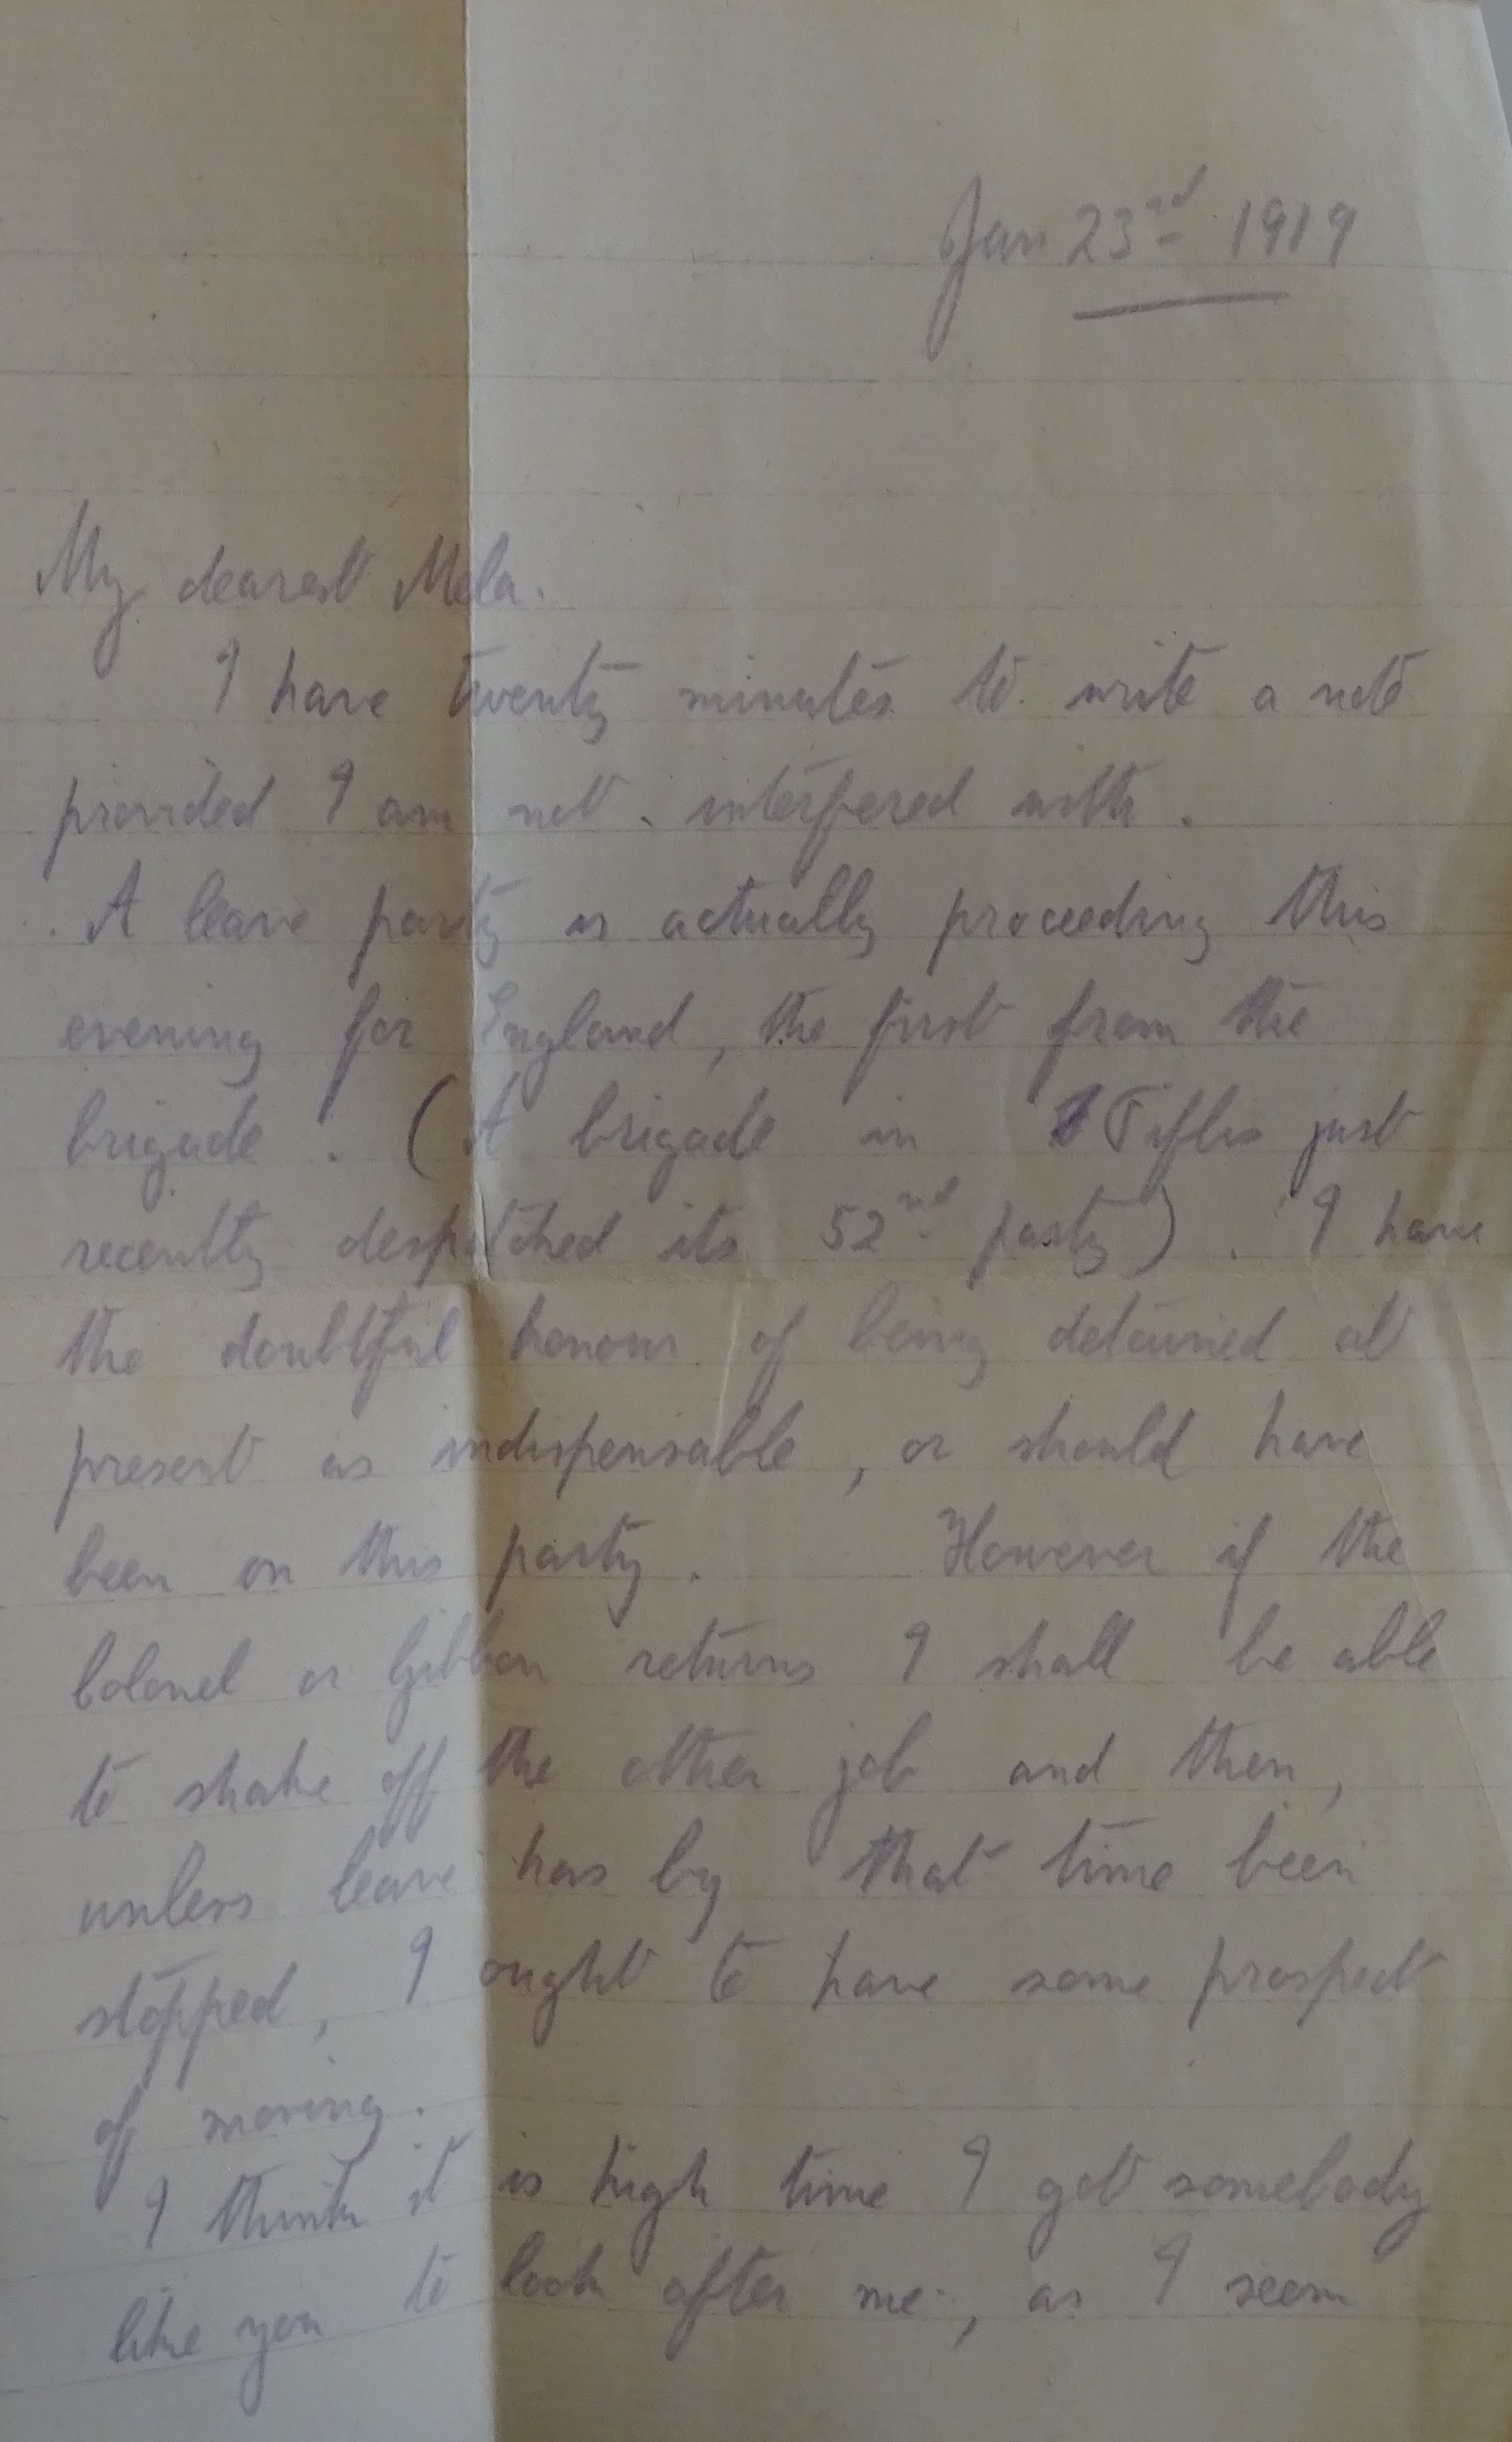 Jan 23rd 1919
My dearest Mela.
I have twenty minutes to write a note
provided I am not interfered with.
A leave party is actually proceeding this
evening for England, the first from the
brigade. (A brigade in Tiflis just
recently despatched its 52nd party). I have
the doubtful honour of being detained at
present as indispensable, or should have
been on this party. However if the
Colonel or Gibbon returns I shall be able
to shake off the other job and then,
unless leave has by that time been
stopped, I ought to have some prospect
of moving.
I think it is high time I got somebody
like you to look after me, as I seem